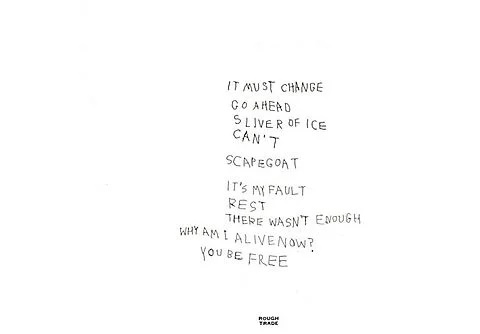 IT MUST CHANGE
GO AHEAD
SLIVER OF ICE
CAN'T
SCAPEGOAT
IT'S MY FAULT
REST
THERE WASN'T ENOUGH
WHY AM I ALIVE NOW?
YOU BE FREE
ROUGH
TRADE